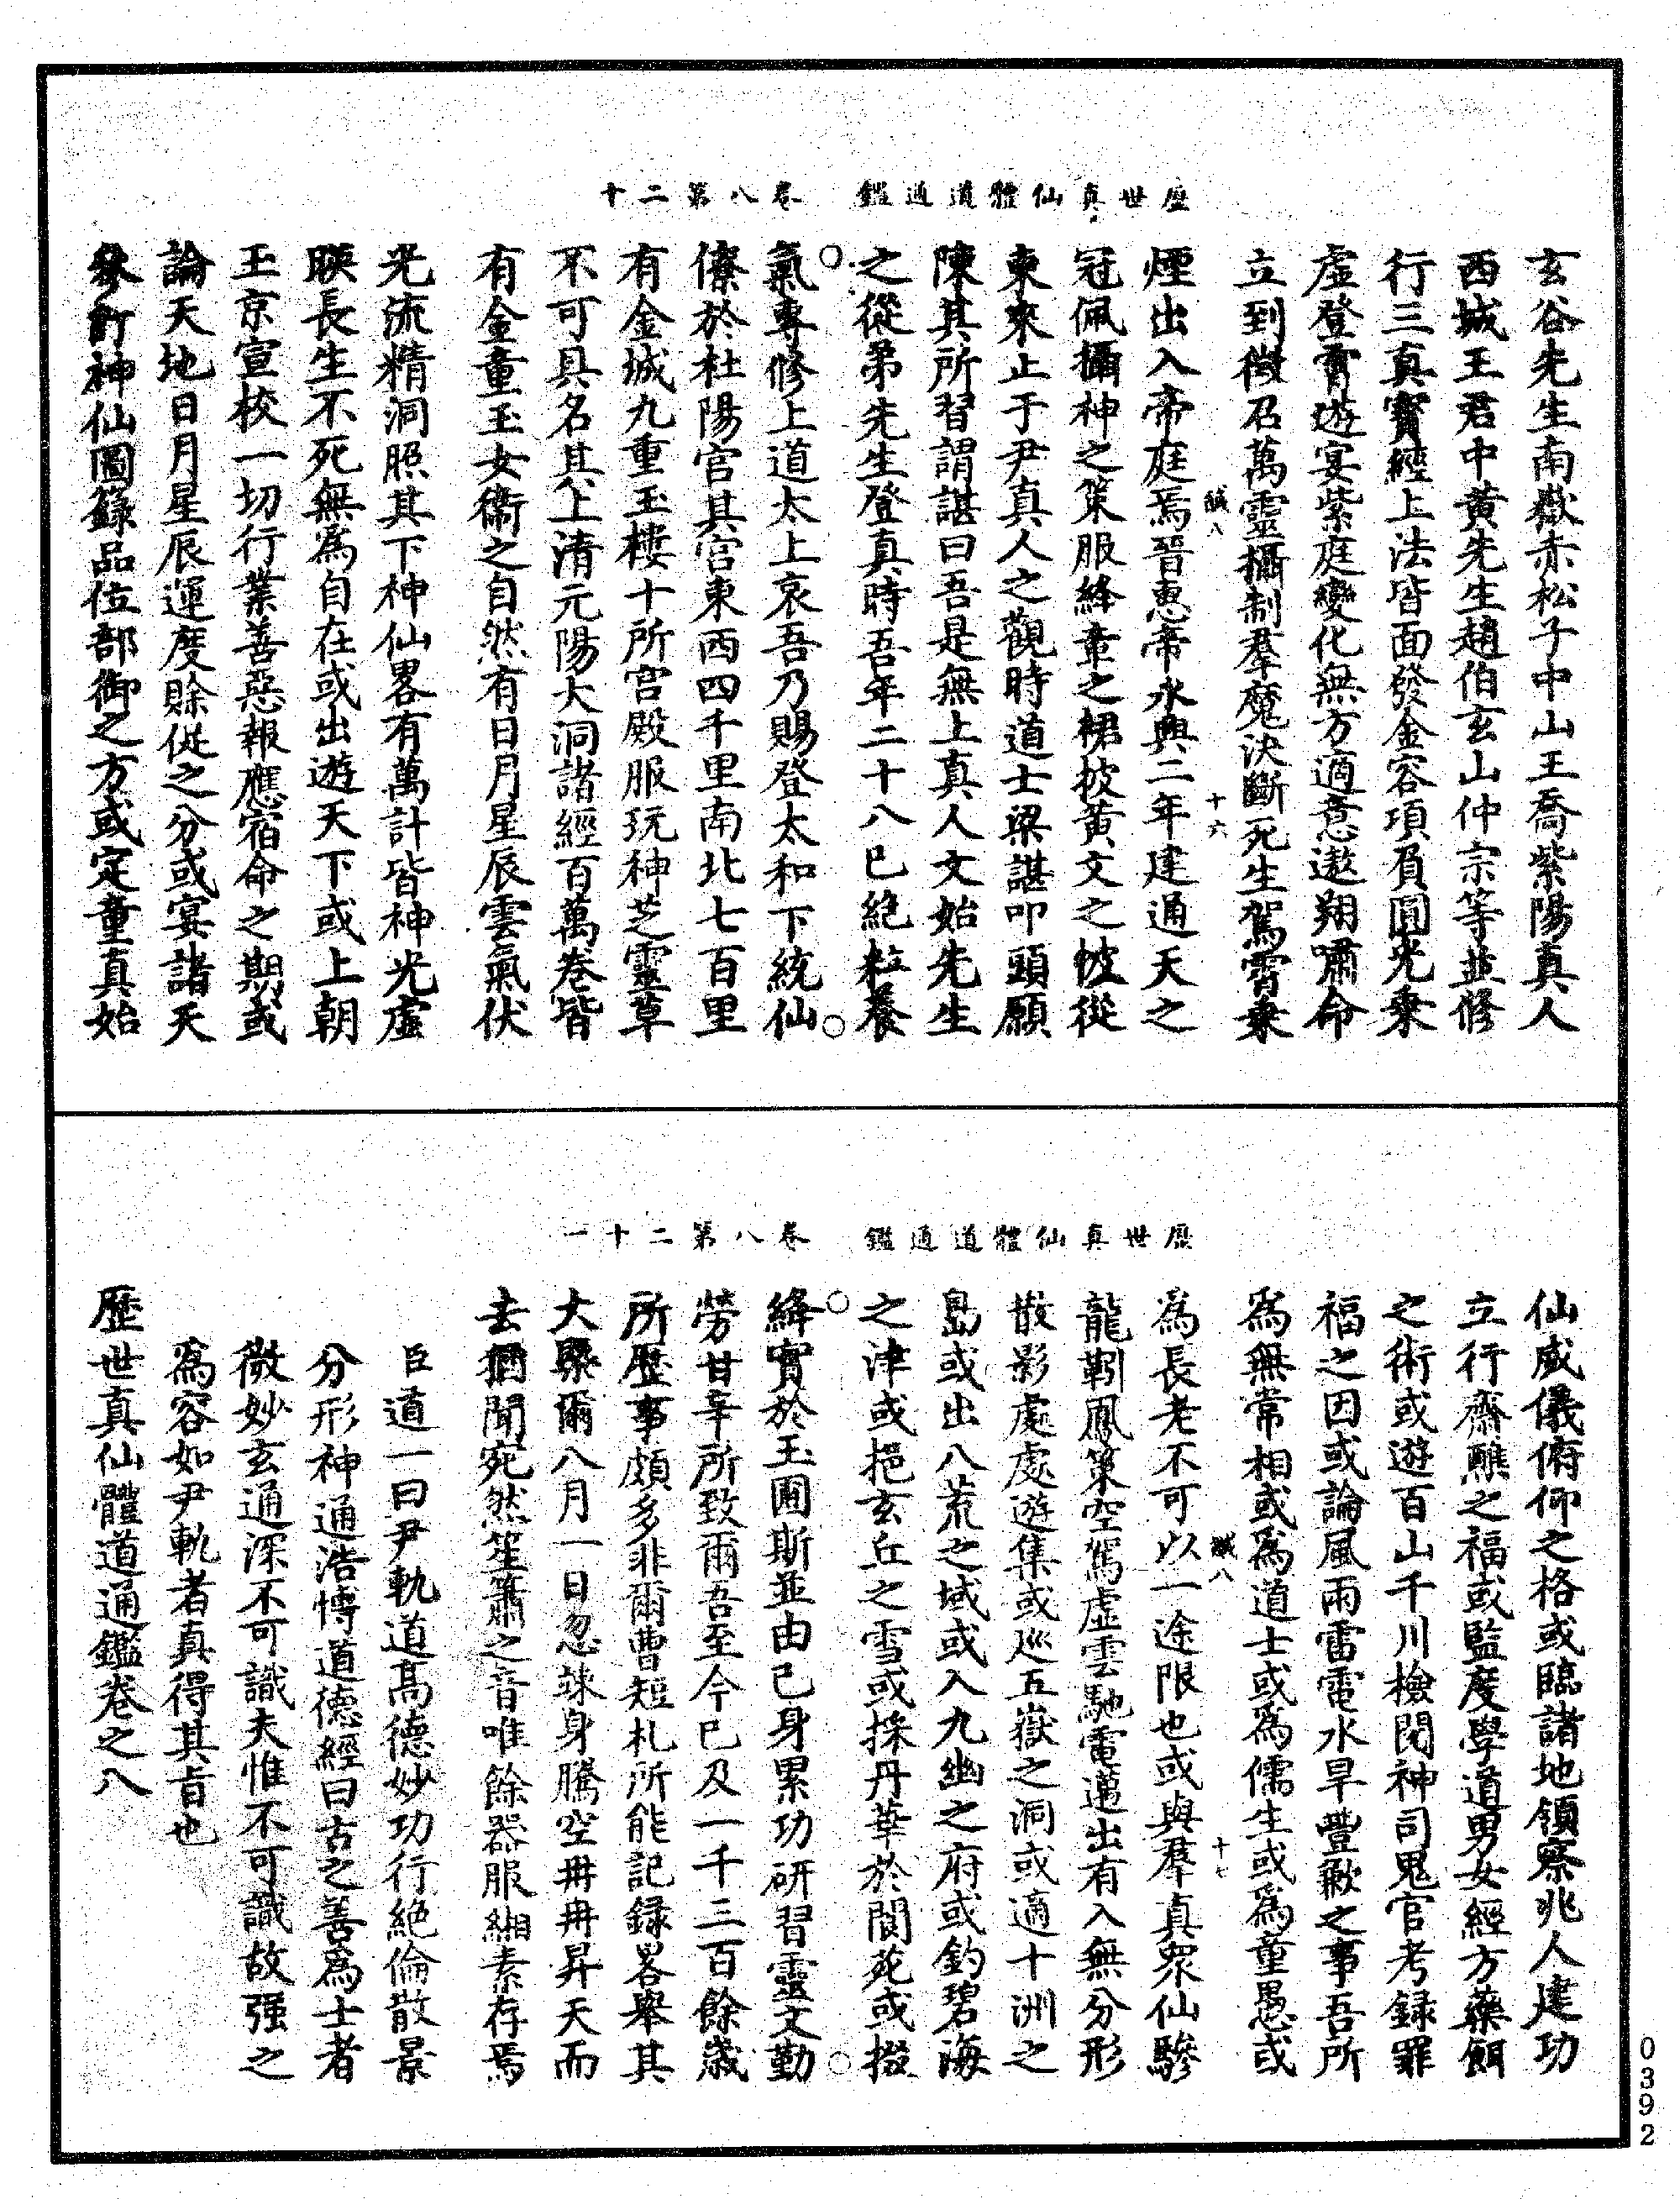 歷世真仙體道通鑑　卷八第二十
玄谷先生南嶽赤松子中山王喬紫陽真人
西城王君中黃先生趙伯玄山仲宗等並修
行三真寶經上法皆面發金容項負圓光乘
虛登霄遊宴紫庭變化無方適意遨翔嘯命
立到徵召萬靈攝制羣魔決斷死生駕霄乘
鹹八　十六
煙出入帝庭焉晉惠帝永興二年建通天之
冠佩攝神之策服絳章之裙披黃文之帔從
東來止于尹真人之觀時道士梁諶叩頭願
陳其所習謂諶曰吾是無上真人文始先生
之從弟先生登真時吾年二十八已絕粒養
氣專修上道太上哀吾乃賜登太和下統仙
僚於杜陽宮其宮東西四千里南北七百里
有金城九重玉樓十所宮殿服玩神芝靈草
不可具名其上清元陽大洞諸經百萬卷皆
有金童玉女衛之自然有日月星辰雲氣伏
光流精洞照其下神仙畧有萬計皆神光虛
映長生不死無為自在或出遊天下或上朝
玉京宣校一切行業善惡報應宿命之期或
論天地日月星辰運度賒促之分或宴諸天
叅訂神仙圖籙品位部御之方或定童真始
歷世真仙體道通鑑　卷八第二十一
仙威儀俯仰之格或臨諸地領察兆人建功
立行齋醮之福或監度學道男女經方藥餌
之術或遊百山千川檢閱神司鬼官考録罪
福之因或論風雨雷電水旱豐歉之事吾所
為無常相或為道士或為儒生或為童愚或
鹹八　十七
為長老不可以一途限也或與羣真眾仙驂
龍靷鳳策空駕虛雲馳電邁出有入無分形
散影處處遊集或巡五嶽之洞或適十洲之
島或出八荒之域或入九幽之府或釣碧海
之津或挹玄丘之雪或採丹華於閬苑或掇
絳實於玉圃斯並由己身累功研習靈文勤
勞甘辛所致爾吾至今已及一千三百餘歲
所歷事頗多非爾曹短札所能記録畧舉其
大槩爾八月一日忽竦身騰空冉冉昇天而
去猶聞宛然笙簫之音唯餘器服緗素存焉
臣道一曰尹軌道高德妙功行絕倫散景
分形神通浩博道德經曰古之善為士者
微妙玄通深不可識夫惟不可識故强之
為容如尹軌者真得其旨也
歷世真仙體道通鑑卷之八
0392